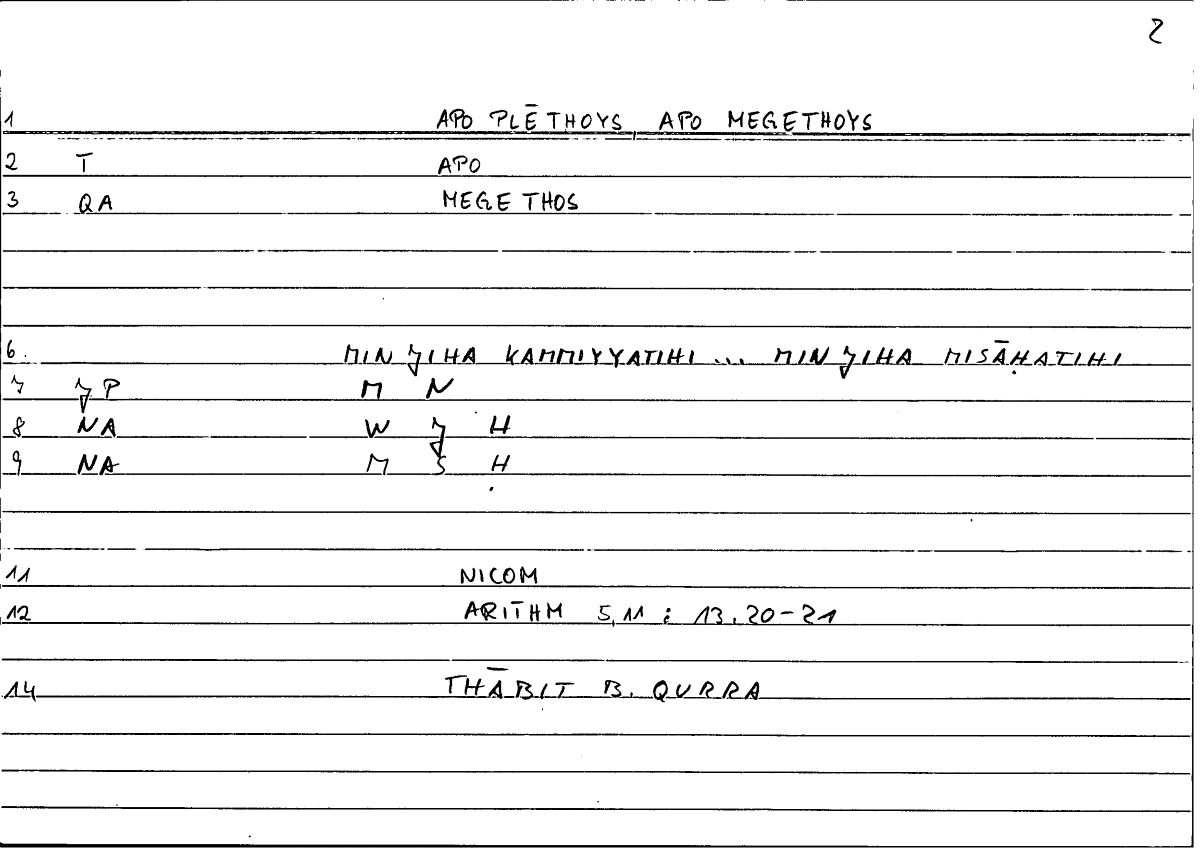 2
1 APO PLĒTHOYS, APO MEGETHOYS
2 T APO
3 QA MEGETHOS
6. MIN ǦIHA KAMMIYYATIHI ... MIN ǦIHA MISĀḤATIHI
7 ǦP M N
8 NA W Ǧ H
9 NA M S Ḥ
11 NICOM
12 ARITHM 5,11 : 13.20-21
14 THĀBIT B. QURRA